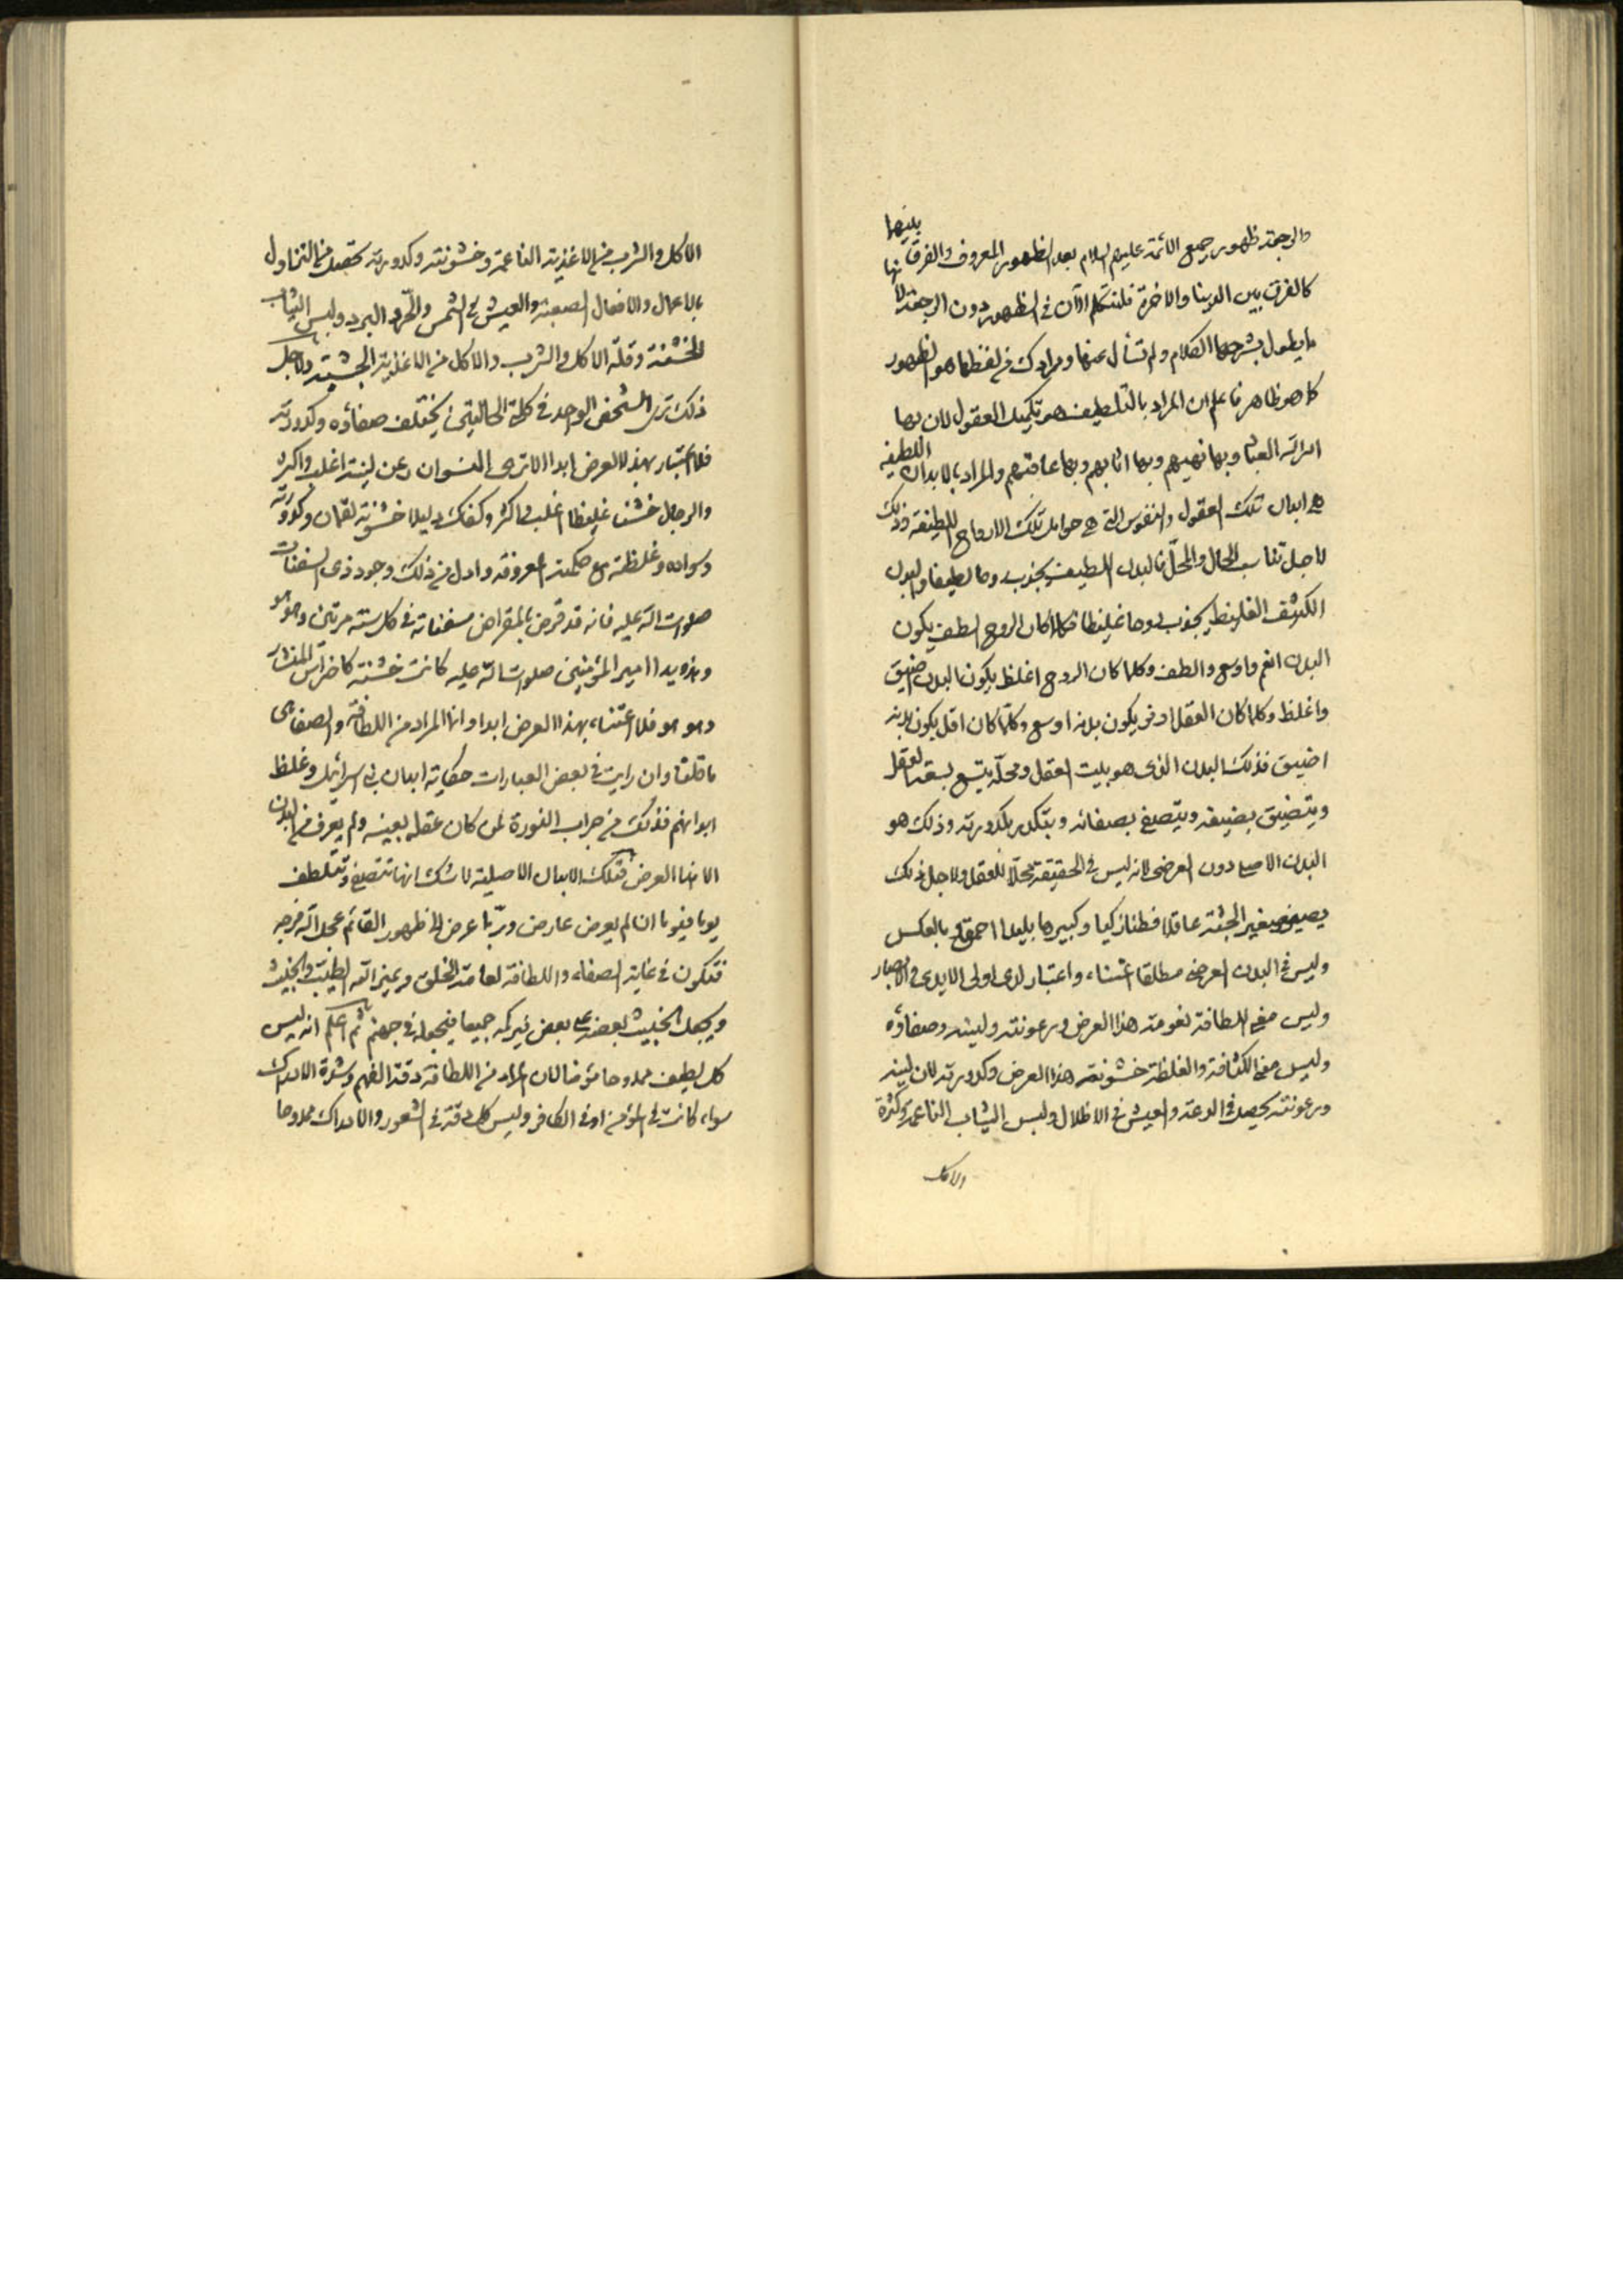 والرجعة ظهور جميع الائمة عليهم السلام بعد الظهور المعروف والفرق بينهما
كالفرق بين الدنيا والاخرة فلنتكلم الآن في الظهور دون الرجعة لانها
ما يطول بشرحها الكلام ولم تسأل عنها ومرادك في لفظها هو الظهور
كما هو ظاهر فاعلم ان المراد بالتلطيف هو تكميل العقول لان بها
امر الله العباد وبها نهيهم وبها اثابهم وبها عاقبهم والمراد بالابدان اللطيفة
هي ابدان تلك العقول والنفوس التي هي حوامل تلك الارواح اللطيفة وذلك
لاجل تناسب الحال والمحل فالبدن اللطيف يجذب روحا لطيفا والبدن
الكثيف الغليظ يجذب روحا غليظا فكلما كان الروح الطف يكون
البدن انعم واوسع والطف وكلما كان الروح اغلظ يكون البدن اضيق
واغلظ وكلما كان العقل اوفر يكون بدنه اوسع وكلما كان اقل يكون بدنه
اضيق فذلك البدن الذي هو بيت العقل ومحله يتسع بسعة العقل
ويتضيق بضيقه ويتصفى بصفائه ويتكدر بكدورته وذلك هو
البدن الاصلي دون العرضي لانه ليس في الحقيقة محلا للعقل ولاجل ذلك
يصير صغير الجثة عاقلا فطنا زكيا وكبيرها بليدا احمق او بالعكس
وليس في البدن العرضي مطلقا اعتناء واعتبار لدى اولى الايدي والابصار
وليس معنى اللطافة نعومة هذا العرض ورعونته ولينه وصفاؤه
وليس معنى الكثافة والغلظة خشونة هذا العرض وكدورته لان لينه
ورعونته يحصل في الدعة والعيش في الاظلال ولبس الثياب الناعمة وكثرة
الاكل
الاكل والشرب من الاغذية الناعمة وخشونته وكدورته تحصل من التناول
بالاعمال والافعال الصعبة والعيش في الشمس والحر والبرد ولبس الثياب
الخشنة وقلة الاكل والشرب والاكل من الاغذية الجشبة ولاجل
ذلك ترى الشخص الواحد في كلتا الحالتين يختلف صفاؤه وكدورته
فلا اعتبار بهذا العرض ابدا الا ترى النسوان رعن لينة اغلب واكثر
والرجال خشنا غليظا اغلب واكثر وكفاك دليلا خشونة لقمان وكدورته
وسواده وغلظته مع حكمته المعروفة وادل من ذلك وجود ذي الثفنات
صلوات الله عليه فانه قد قرض بالمقراض ثفناته في كل سنة مرتين وهو هو
وهذه يدا امير المؤمنين صلوات الله عليه كانت خشنة كاضراس المنشار
وهو هو فلا اعتناء بهذا العرض ابدا وانما المراد من اللطافة والصفا هي
ما قلنا وان رايت في بعض العبارات حكاية ابدان بني اسرائيل وغلظ
ابدانهم فذلك من جراب النورة لمن كان عقله بعينه ولم يعرف من البدن
الا هذا العرض فتلك الابدان الاصلية لا شك انها تتصفى وتتلطف
يوما فيوما ان لم يعرض عارض وربما عرض الى ظهور القائم عجل الله فرجه
فتكون في غاية الصفاء واللطافة لعامة الخلق ويميز الله الطيب والخبيث
ويجعل الخبيث بعضه على بعض فيركمه جميعا فيجعله في جهنم ثم اعلم انه ليس
كل لطيف ممدوحا مؤمنا لان المراد من اللطافة دقة الفهم وشدة الادراك
سواء كانت في المؤمن او في الكافر وليس كل دقة في الشعور والادراك ممدوحا